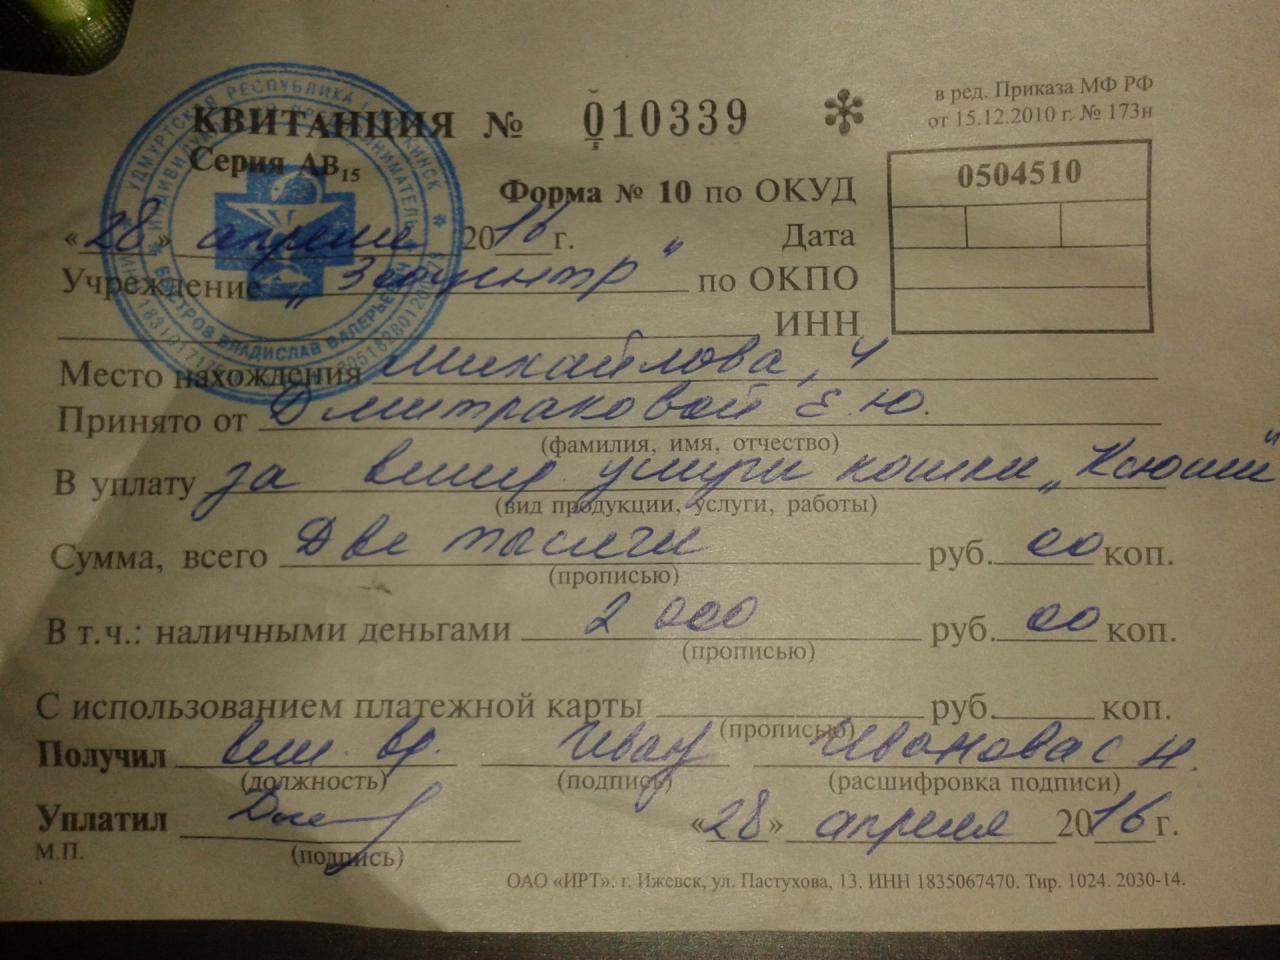 в ред. Приказа МФ РФ
от 15.12.2010 г. № 173н
КВИТАНЦИЯ № 010339
Серия АВ15
Форма № 10 по ОКУД 0504510
«28» апреля 2016 г. Дата
Учреждение „Зооцентр“ по ОКПО
ИНН
Место нахождения Михайлова, 4
Принято от Дмитраковой Е Ю.
(фамилия, имя, отчество)
В уплату за вет услуги кошки „Ксюши“
(вид продукции, услуги, работы)
Сумма, всего Две тысячи руб. 00 коп.
(прописью)
В т.ч.: наличными деньгами 2 000 руб. 00 коп.
(прописью)
С использованием платежной карты руб. коп.
(прописью)
Получил вет. вр. Иван Иванова С Н.
(должность) (подпись) (расшифровка подписи)
Уплатил «28» апреля 2016 г.
М.П. (подпись)
ОАО «ИРТ». г. Ижевск, ул. Пастухова, 13. ИНН 1835067470. Тир. 1024. 2030-14.
УДМУРТСКАЯ РЕСПУБЛИКА
ИНДИВИДУАЛЬНЫЙ ПРЕДПРИНИМАТЕЛЬ
ВЛАДИСЛАВ ВАЛЕРЬЕВИЧ